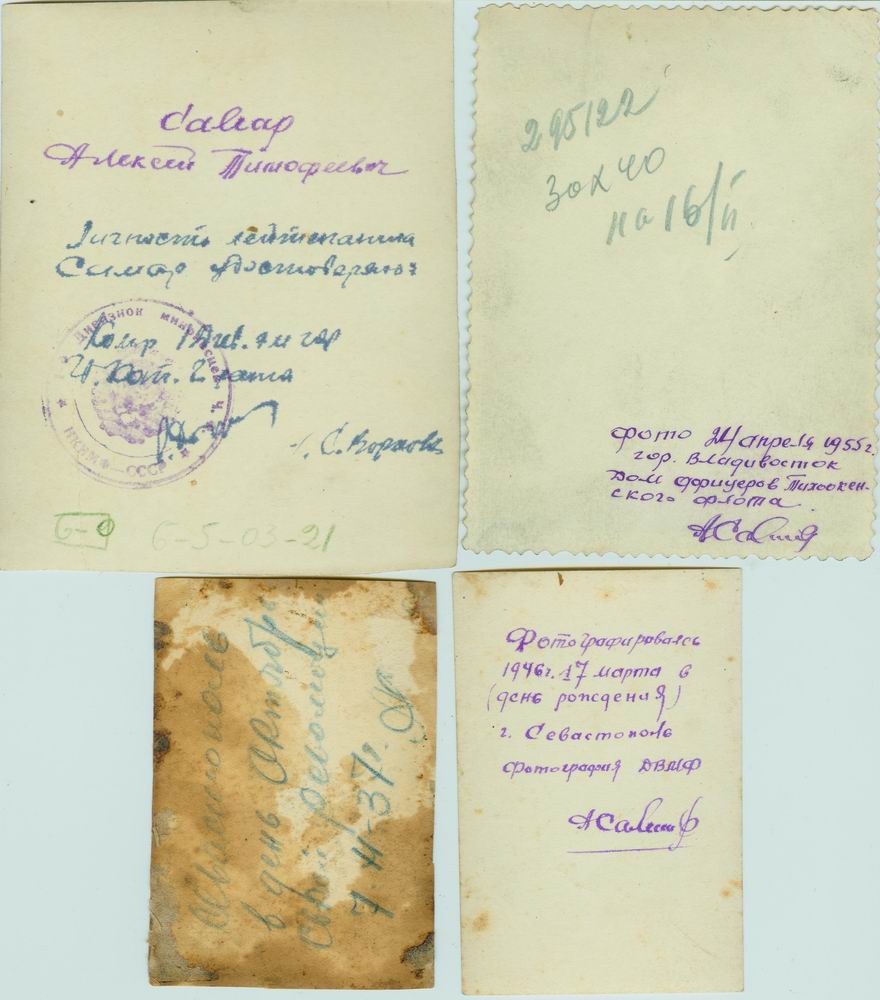 Самар
Алексей Тимофеевич
Личность лейтенанта
Самар удостоверяю:
Дивизион
СССР
6-5-03-21
295122
на 16/II
Фото 24 апреля 1955 г.
гор. Владивосток
Дом офицеров Тихоокен-
ского флота.
АСамар
Севастополь
в день Октябрь
ской революции
7-11-37г.
Фотографировалась
1946г. 17 марта в
(день рождения)
г. Севастополь
Фотография ДВМФ
АСамар